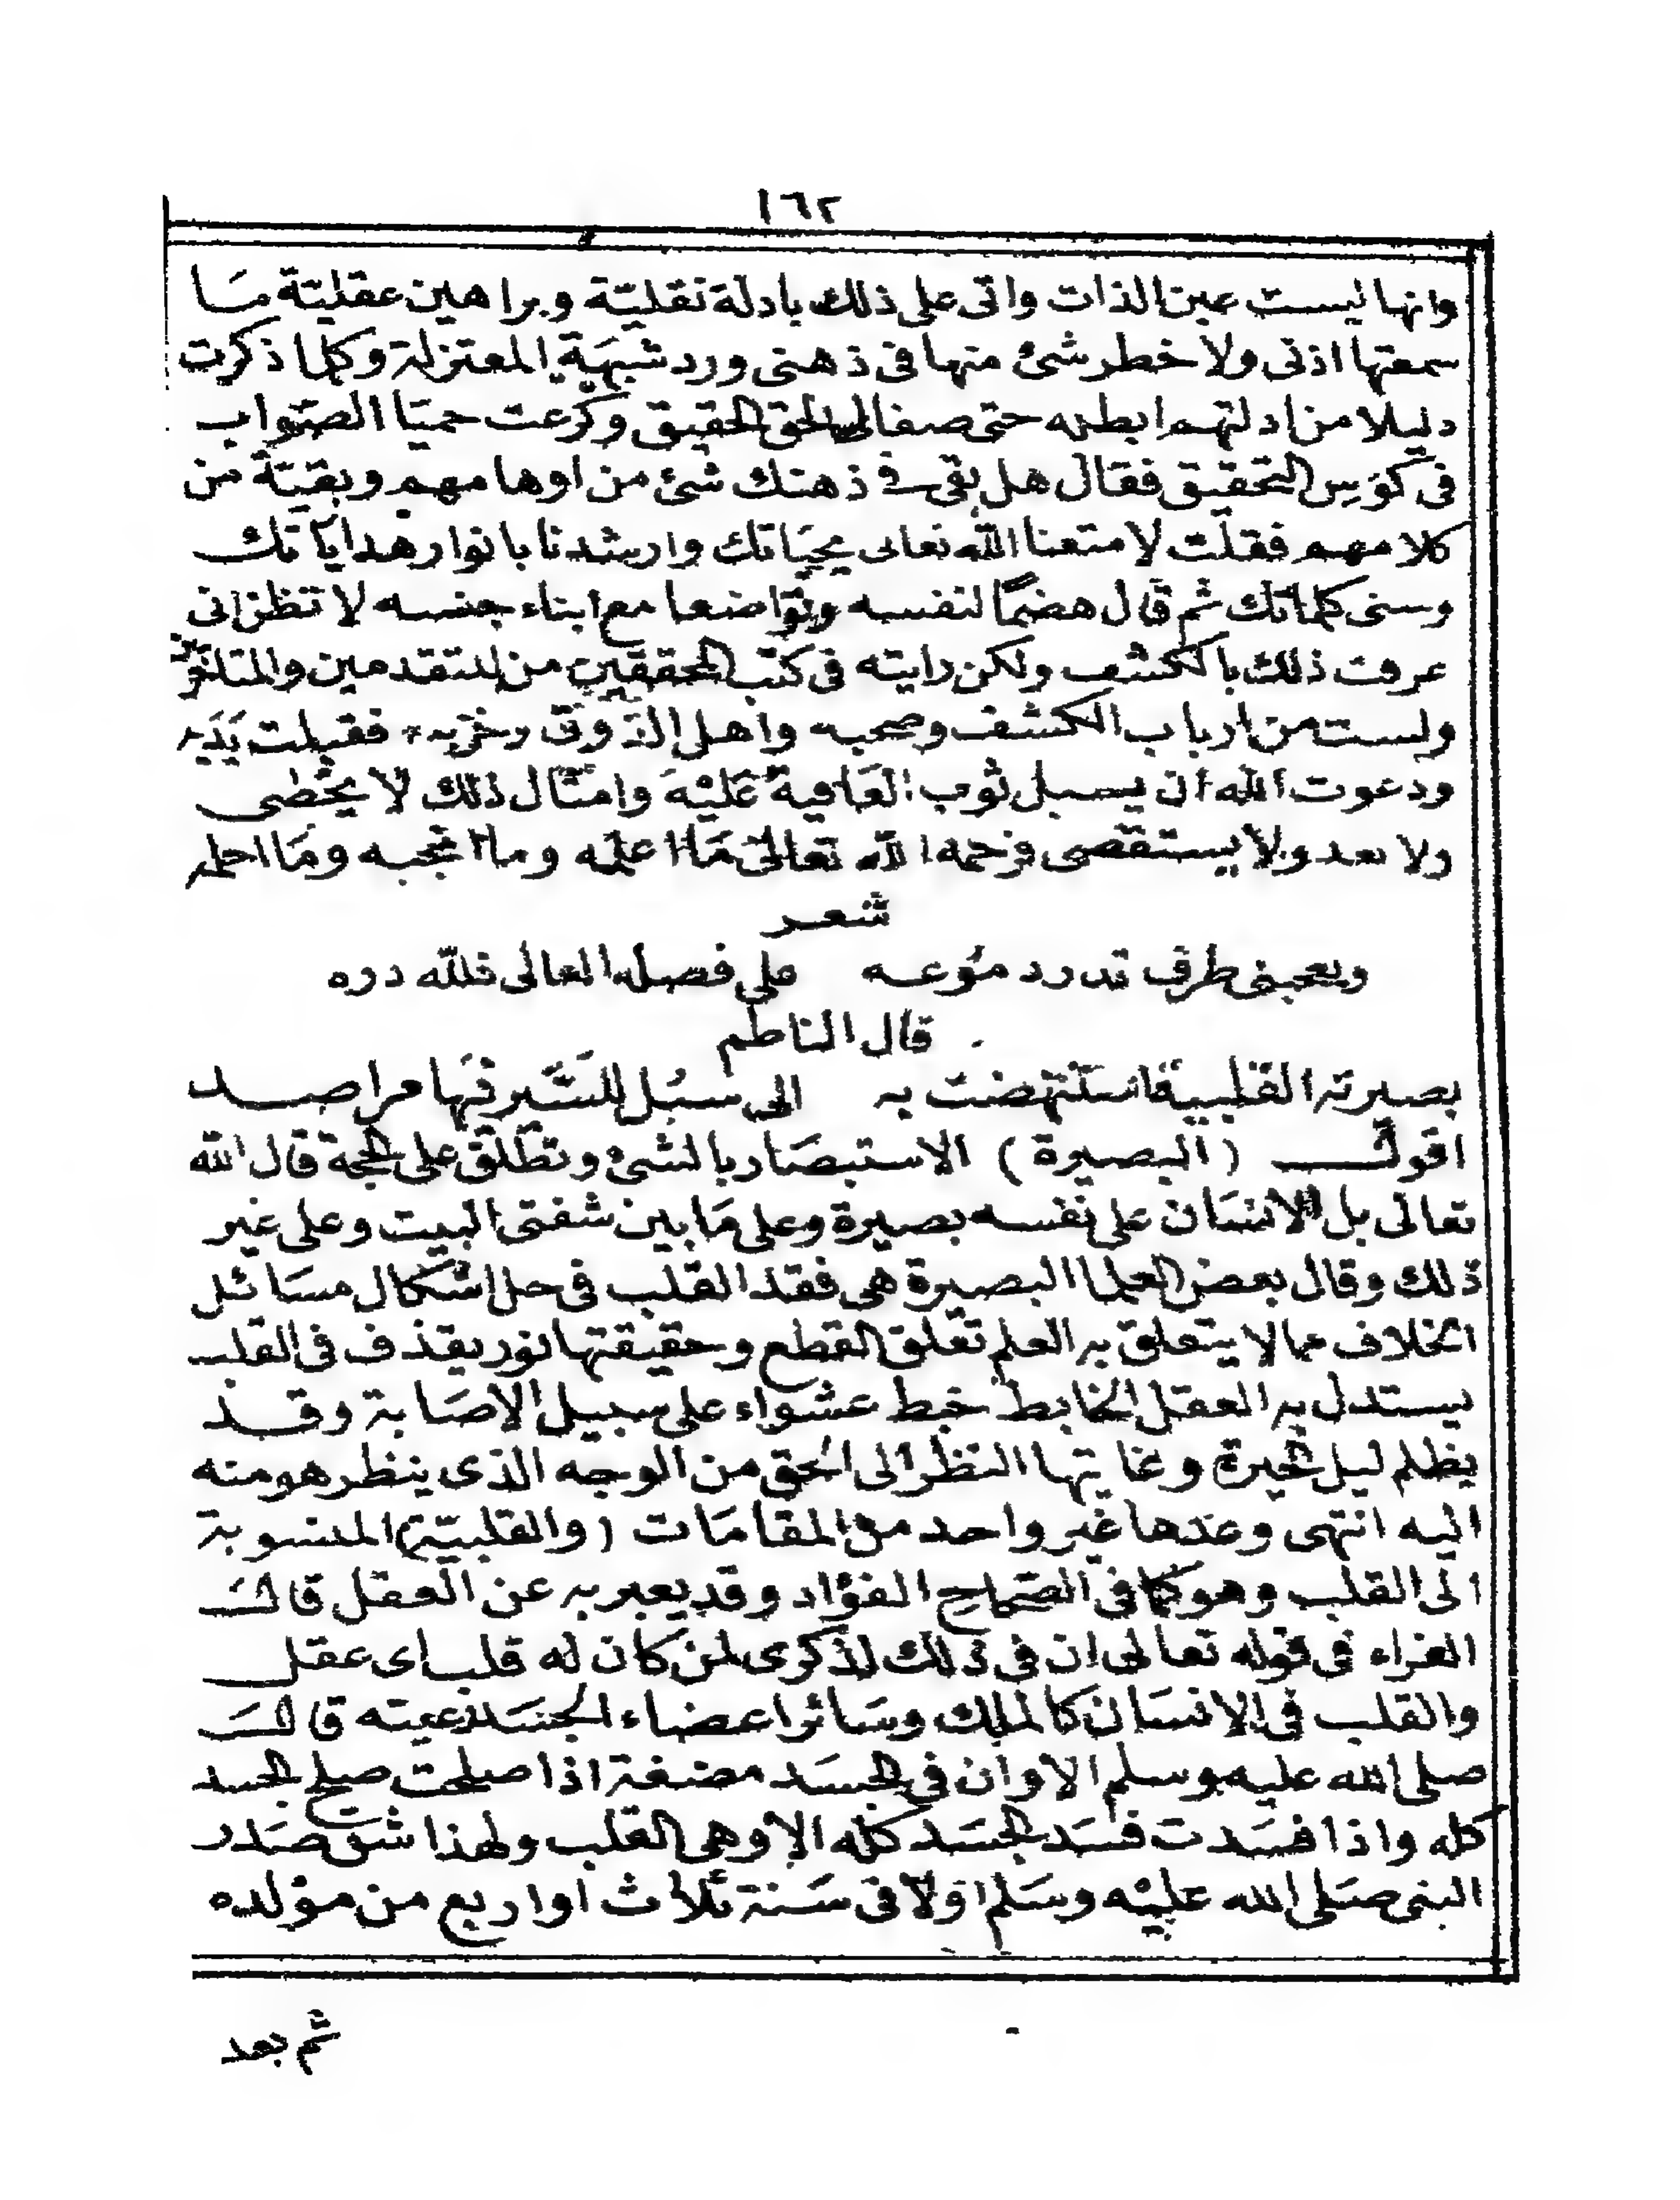 ١٦٢
وانها ليست عين الذات واتى على ذلك بادلة نقليّة وبراهين عقليّة مَا
سمعتها اذنى ولا خطر شئ منها فى ذهنى ورد شبهَةِ المعتزلة وكلما ذكرت
دليلا من ادلتهم ابطله حتى صفالى الحق الحقيق وكرعت حميّا الصّواب
فى كؤس التحقيق فقال هل بقى فى ذهنك شئ من اوهامهم وبقيّة من
كلامهم فقلت لا متعنا الله تعالى بحيَاتك وارشدنا بانوار هداياتك
وسنى كلماتك ثم قال هضمًا لنفسه وتواضعا مع ابناء جنسه لا تظن انى
عرفت ذلك بالكشف ولكن رايته فى كتب المحققين من المتقدمين والمتاخرين
ولست من ارباب الكشف وصحبه واهل الذوق وحزبه فقبلت يَدَيه
ودعوت الله ان يسبل ثوب العَافية عَليْه وامثال ذلك لا يحصى
ولا يعد ولا يستقصى فرحمه الله تعالى مَا اعلمه وما انجبه ومَا احلمه
شعر
ويعجبنى طرف تدر دموعه على فضله العالى فلله دره
قال الناظم
بصيرته القلبية استنهضت به الى سبُل للسَّير فيها مراصد
اقول (البصيرة) الاستبصَار بالشئ وتطلق على الحجة قال الله
تعالى بل الانسَان على نفسه بصيرة وعلى مَا بين شفتى البيت وعلى غير
ذلك وقال بعض العلما البصيرة هى فقد القلب فى حل اشكال مسَائل
الخلاف مما لا يتعلق به العلم تعلق القطع وحقيقتها نور يقذف فى القلب
يستدل به العقل الخابط خبط عشواء على سبيل الاصَابة وقد
يظلم ليل الحيرة وغايتها النظر الى الحق من الوجه الذى ينظر هو منه
اليه انتهى وعدها غير واحد من المقامَات (والقلبيّة) المنسوبة
الى القلب وهو كما فى الصّحاح الفؤاد وقد يعبر به عن العقل قال
الفراء فى قوله تعالى ان فى ذلك لذكرى لمن كان له قلب اى عقل
والقلب فى الانسَان كالملك وسَائر اعضاء الجسَد رعيته قال
صلى الله عليه وسلم الا وان فى الجسَد مضغة اذا صلحت صلح الجسد
كله واذا فسَدت فسَد الجسَد كله الا وهى القلب ولهذا شق صَدر
النبى صَلى الله عليْه وسَلم اوّلا فى سَنة ثلاث او اربع من مولده
ثم بعد